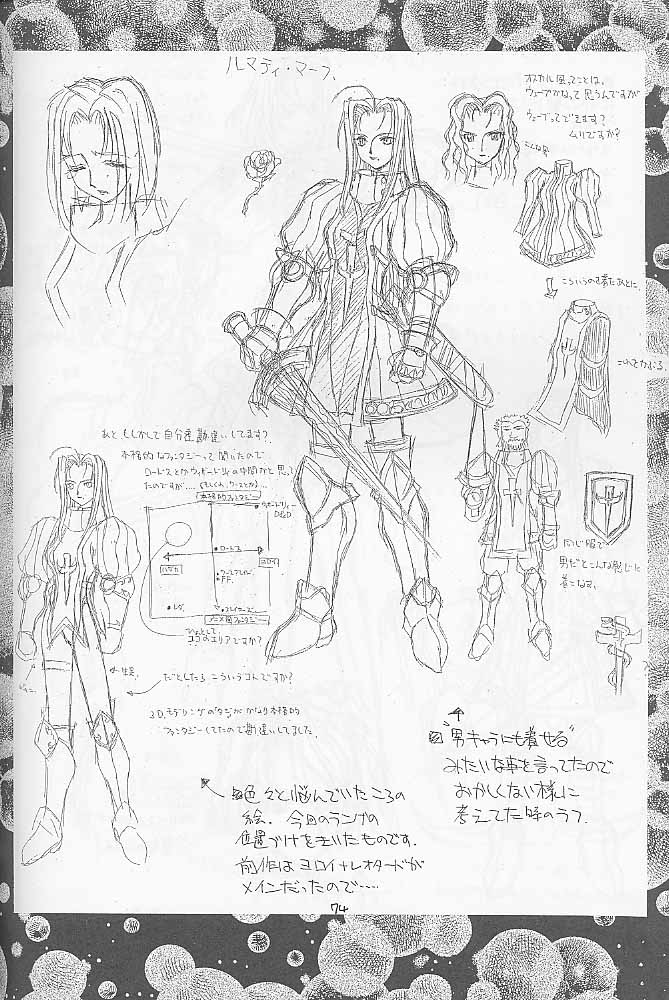 ルマティ・マーブ、
オスカル風ってことは、
ウェーブかなって思うんですが
ウェーブってできます?
ムリですか?
こんな風
こういうの着たあとに、
これをかぶる、
あと、もしかして自分達勘違いしてます?
本格的なファンタジーって聞いたので
ロードスとかウィザードリィの中間かと思って
たのですが....
本格的ファンタジー
ウィザードリィー
D&D
ロードス
ハダカ
ヨロイ
FF.
アニメ的ファンタジー
ひょっとして
ココのエリアですか?
同じ服で
男だとこんな感じに
着こなす。
←生足
だとしたらこういうコトですか?
3D.モデリングの
ファンタジーしてたので勘違いしてました。
色々と悩んでいたころの
絵、今回のランプの
位置づけをきいたものです.
前作はヨロイ+レオタードが
メインだったので....
"男キャラにも着せる"
みたいな事を言ってたので
おかしくない様に
考えてた時のラフ.
74